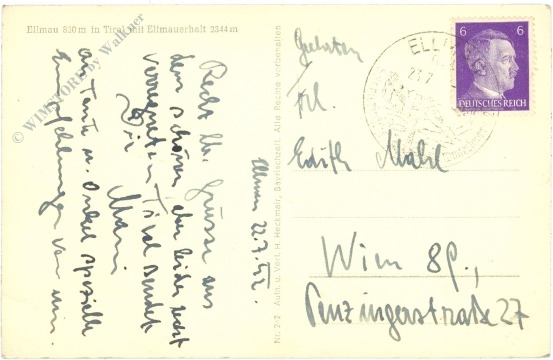 Ellmau 820 m in Tirol mit Ellmauerhalt 2344 m
© WIMSTORE by Walkner
Ellmau 22.7.42.
Recht lb. Grüsse aus
dem schönen, aber leider recht
verregneten Tirol sendet
Dir
Mami
an Tante u. Onkel spezielle
Empfehlungen von mir.
Nr. 2/2 Aufn. u. Verl. H. Heckmair, Bayrischzell. Alle Rechte vorbehalten
6 6
DEUTSCHES REICH
ELLM
Frl.
Edith Mahl
Wien 89.,
Penzingerstraße 27